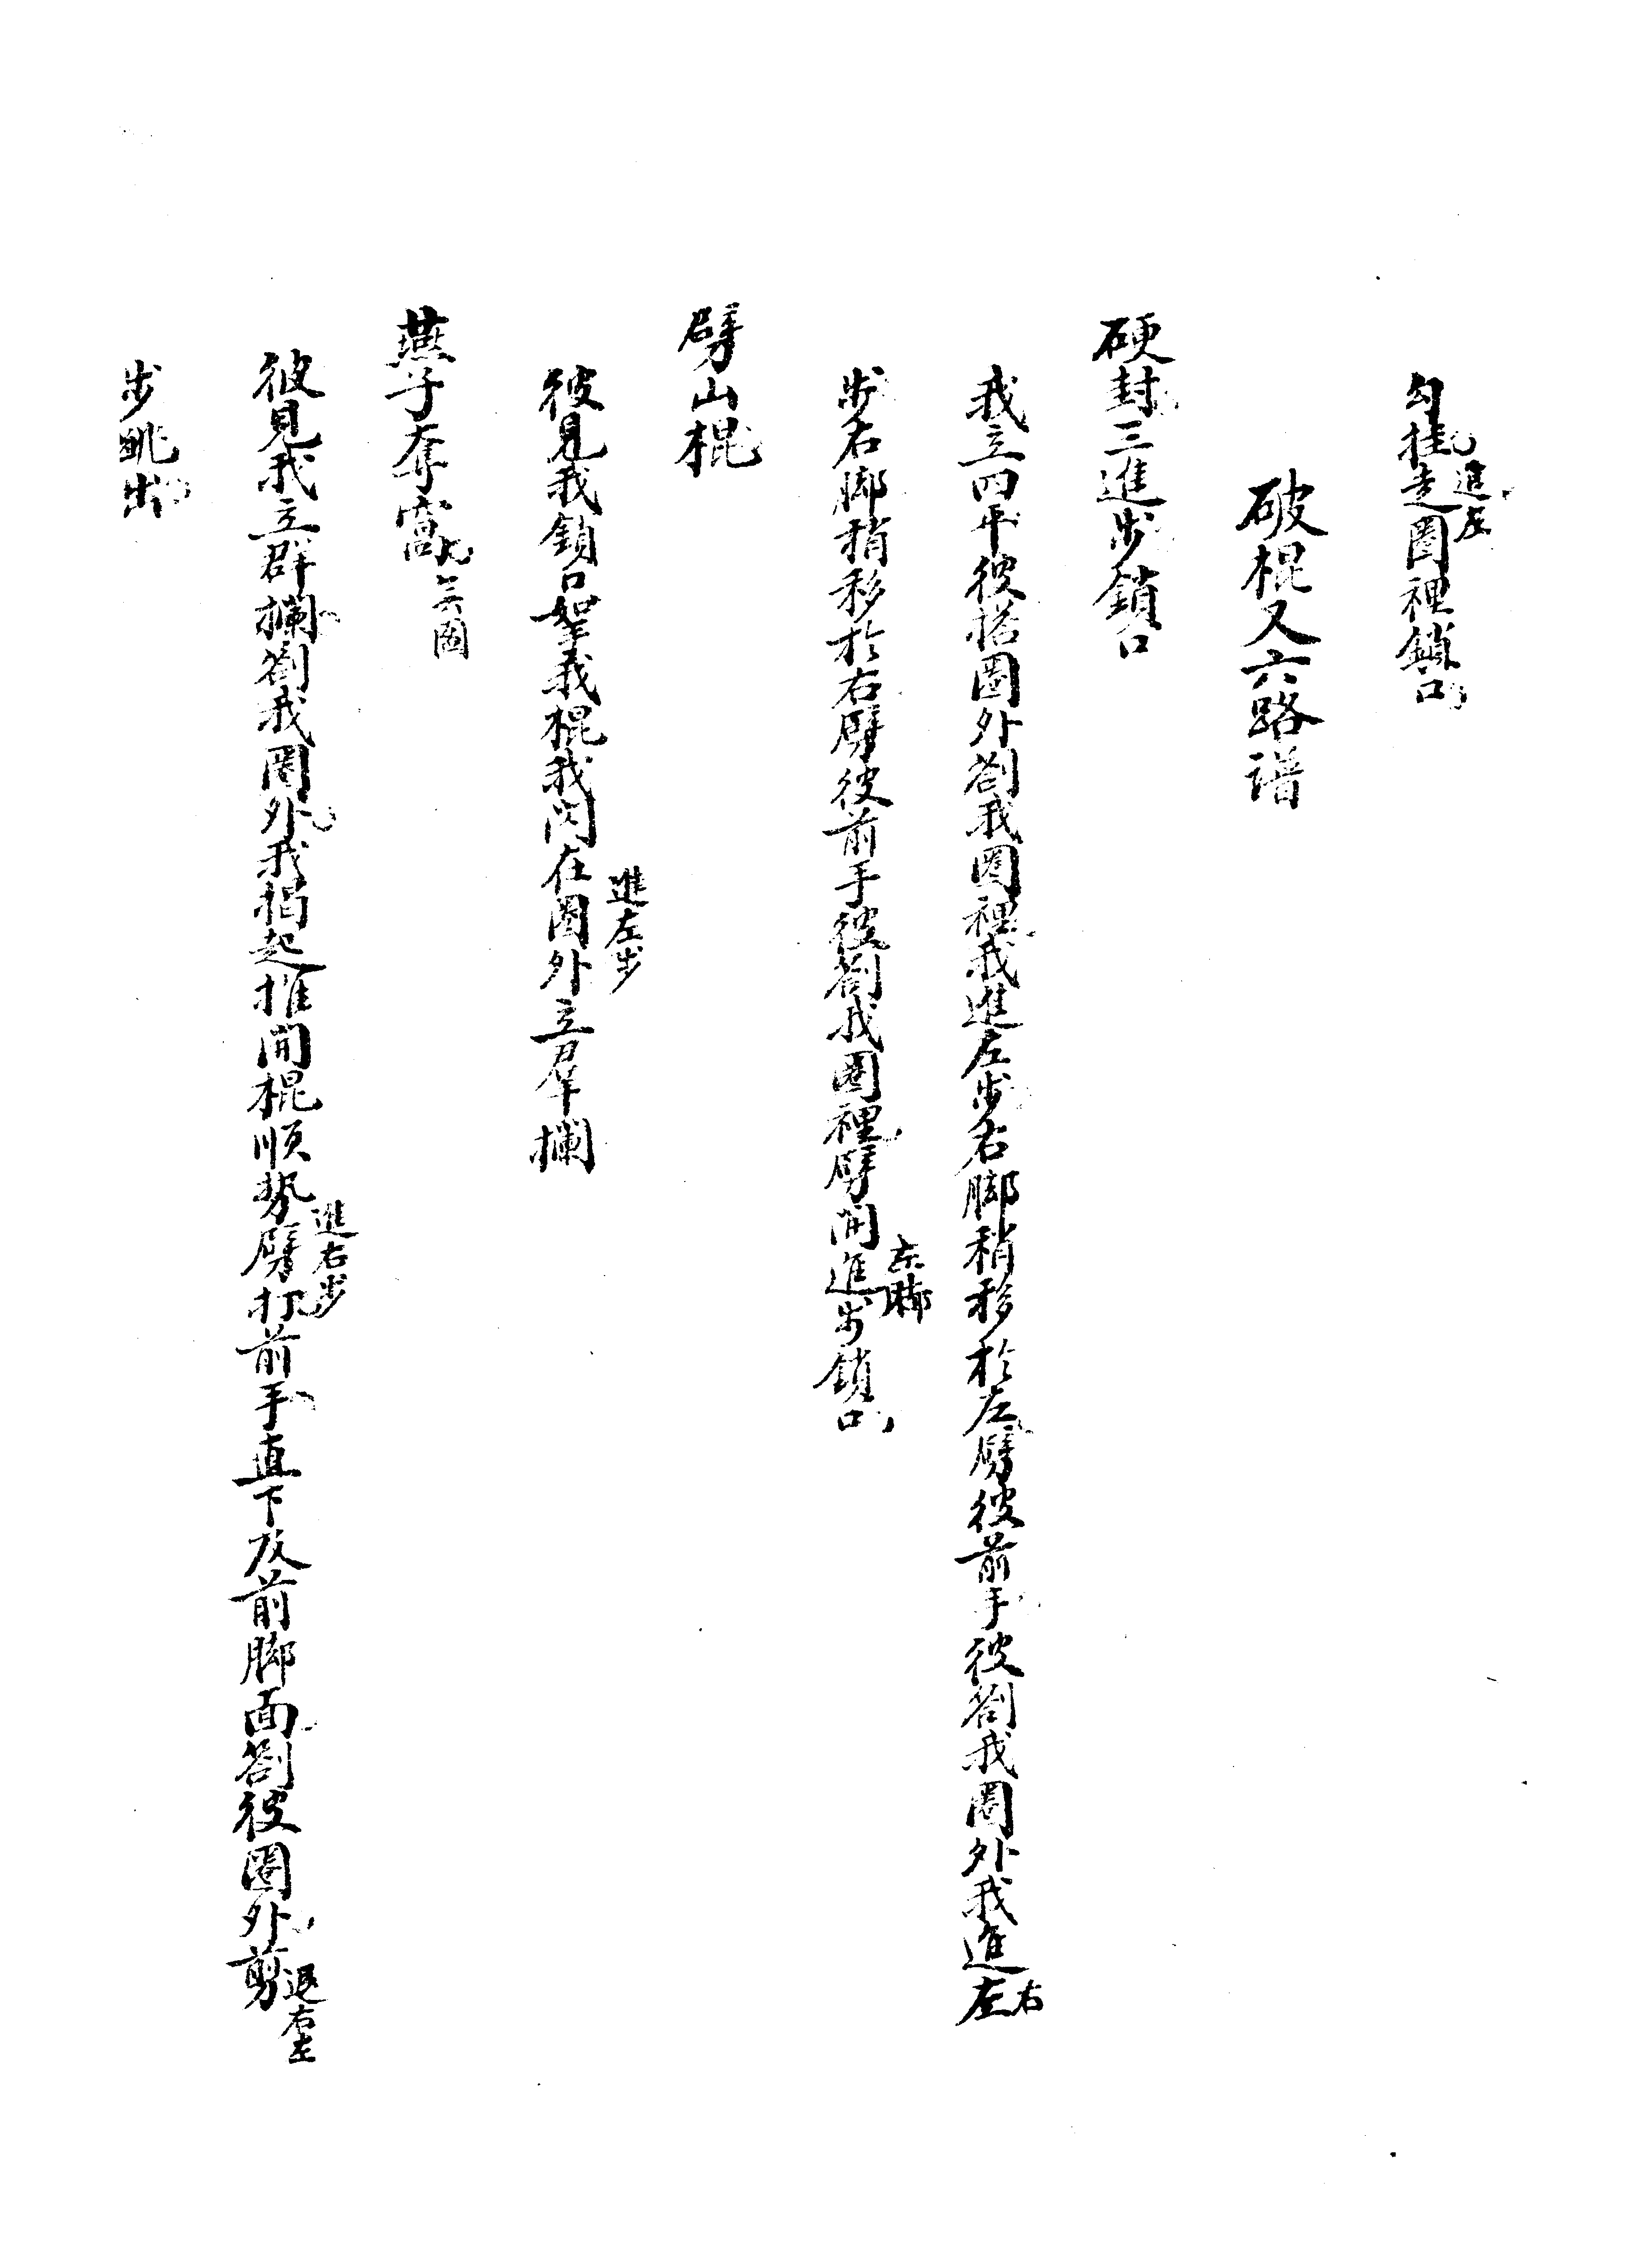 勾挂進左走圈裡鎖口
破棍又六路譜
硬封三進步鎖口
我立四平彼搭圈外劄我圈裡我進左步右脚稍移於左劈彼前手彼劄我圈外我進左右
步右脚稍移於右劈彼前手彼劄我圈裡劈開進左脚步鎖口
劈山棍
彼見我鎖口拏我棍我閃在圈外進左步立羣攔
燕子奪窩 三圖
彼見我立群攔劄我圈外我揭起推開棍順勢劈打進右步前手直下及前脚面劄彼圈外剪退右左
步跳出